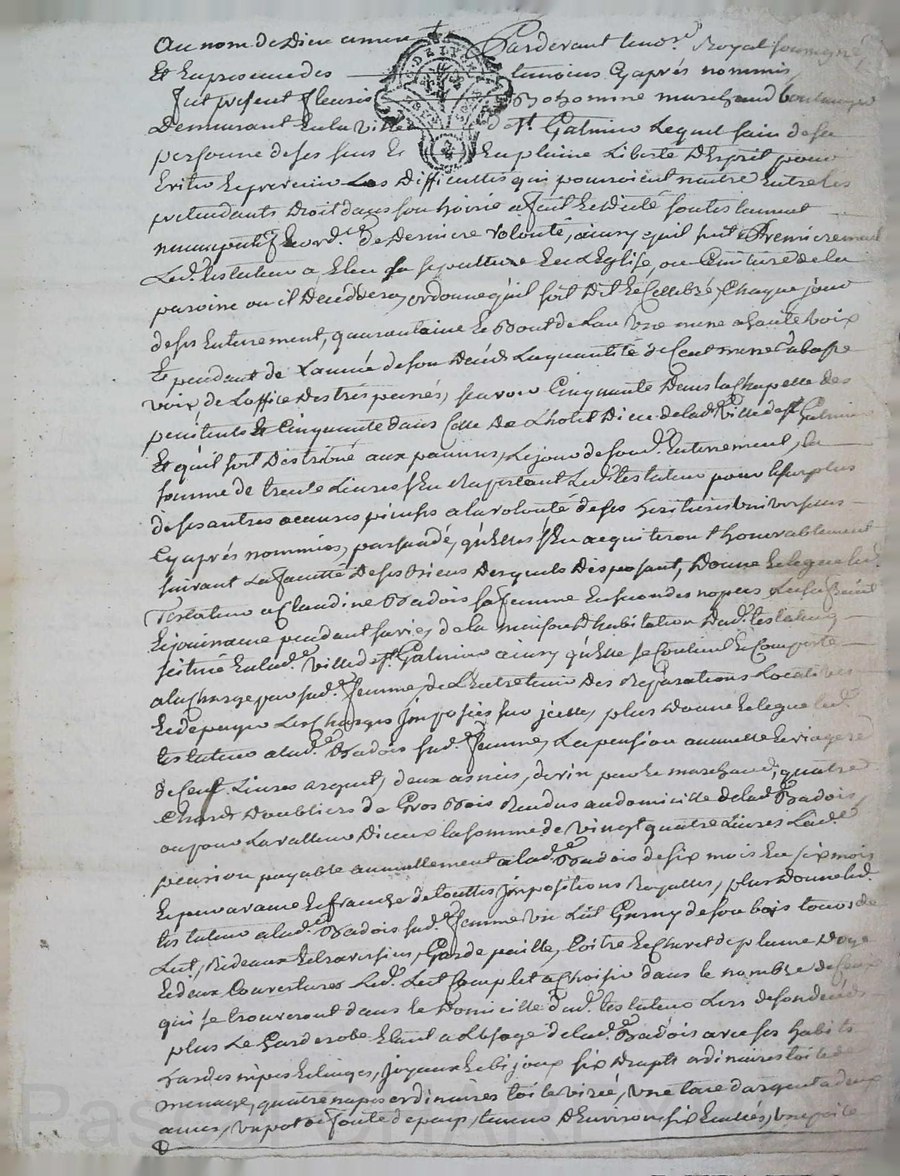 Au nom de Dieu amen Pardevant le no.re Royal soussigné
Et En presence des temoins Cy aprés nommés
fut present fleuris Bohomme marchand boulanger
Demeurant En la ville de s.t Galmier Lequel sain de sa
personne de ses sens Et En pleine Liberté D'Esprit pour
Eviter Et prevenir Les Difficultés qui pourroient naitre Entre les
pretendants Droit dans son hoirie a fait Et dicté son testament
nuncupatif Et ord.ce de Derniere volonté, ainsy qu'il suit Premierement
Led. testateur a Eleu sa sepulture En L'Eglise, ou Cimitiere de la
paroisse ou il Decedera, ordonne qu'il soit Dit Et Cellebré Chaque jour
de ses Enterrement, quarantaine Et Bout de L'an une messe a haute voix
Et pendant de L'année de son Decés La quantité de Cent messes a basse
voix, de L'office Des trepassés, sçavoir Cinquante Dans la Chapelle des
penitents Et Cinquante dans Celle De L'hotel Dieu de lad. Ville de s.t Galmier
Et qu'il soit Distribué aux pauvres, Le jour de sond. Enterrement, la
somme de trente Livres s'En Rapportant Led. testateur pour le surplus
de ses autres oeuvres pieuses a la volonté de ses heritiers universels
Cy aprés nommées, persuadé, qu'elles s'En acquiteront honorablement
suivant La faculté De ses Biens Desquels Disposant, Donne Et Legue led.
Testateur a Claudine Badois sa femme En secondes nopces L'usufruit
Et jouissance pendant sa vie, de la maison D'habitation Dud. testateur
scituée En lad.e Ville de s.t Galmier ainsy qu'elle se Contient Et Comporte
a la Charge par sad. femme, de L'Entretenir Des Reparations Locatives
Et de payer Les Charges Imposées sur jcelle, plus Donne Et Legue led.
testateur a lad.e Badois sad. femme, La pension annuelle Et viagere
de Cent Livres argent, deux asnées, de vin pur Et marchand, quatre
Chards Doubliers de Gros Bois Rendus au domicille de lad. Badois
ou pour La valleur D'iceux la somme de Vingt quatre Livres Lad.e
pension payable annuellement a lad.e Badois de six mois En six mois
Et par avance Et franche de touttes Impositions Royalles, plus Donne led.
testateur a lad.e Badois sad. femme un Lit Garny de son bois tour de
Lit, Rideaux Et traversier, Garde paille, Coitre Et Chevet de plume D'oye
Et deux Couvertures Led. Lit Complet a Choisir dans le nombre de Ceux
qui se trouveront dans le Domicille dud. testateur Lors de son decés
plus Le Garderobe Etant a L'usage de lad.e Badois avec ses habits
hardes nipes Et linges, joyaux Et bijoux six Draps ordinaires toile de
menage, quatre napes ordinaires toile virée, une tasse d'argent a deux
ances, un pot de fonte de pays, tenant D'Environ six Ecuelles, une poile